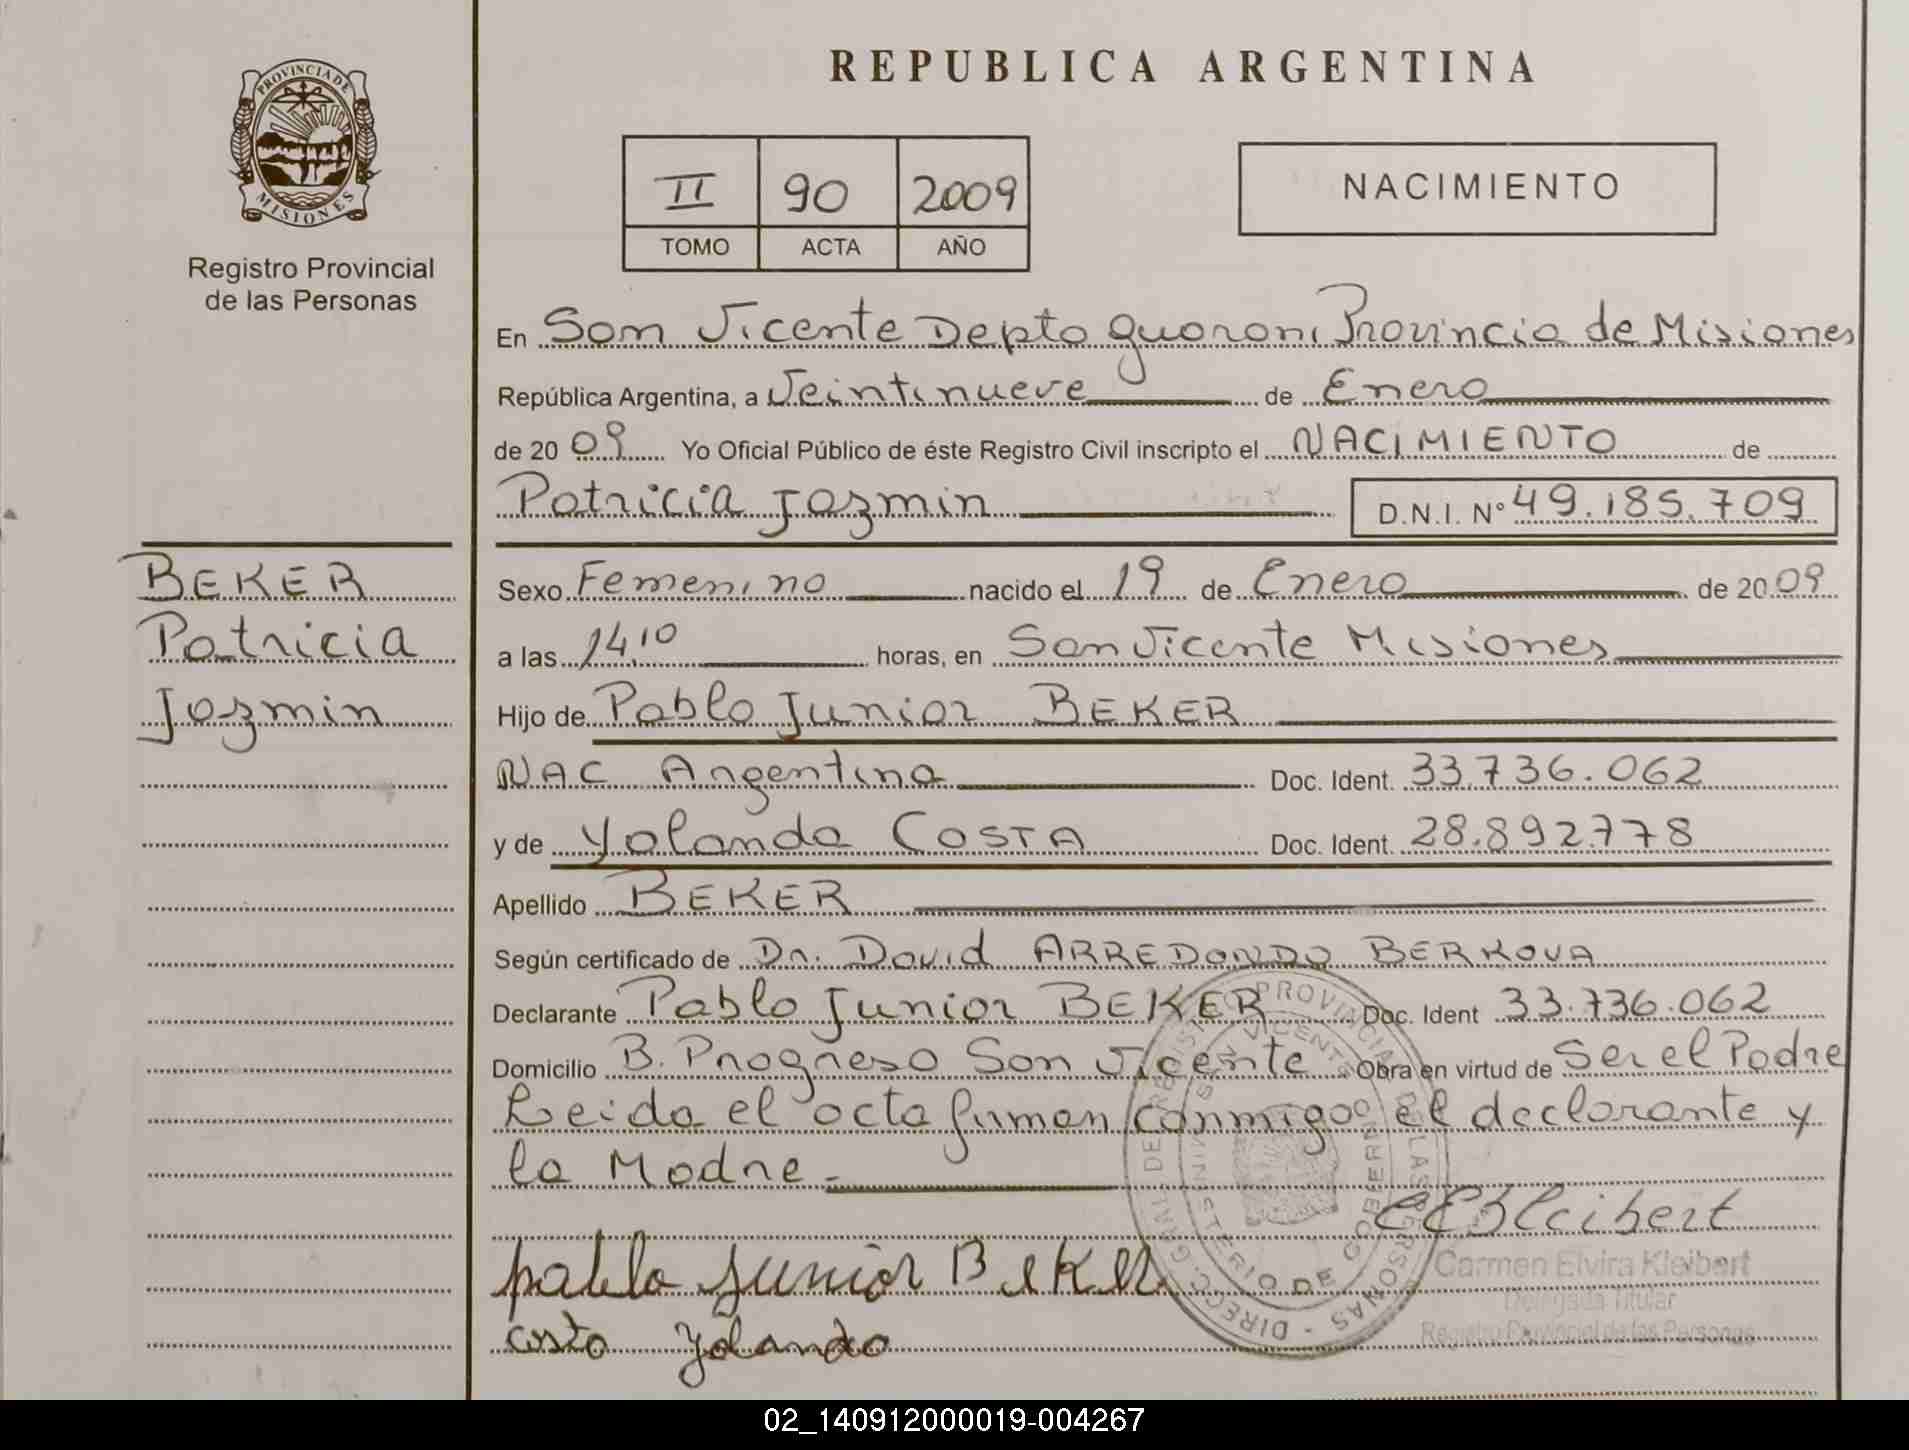 PROVINCIA DE
MISIONES
Registro Provincial
de las Personas
BEKER
Patricia
Jazmin
REPUBLICA ARGENTINA
II 90 2009
TOMO ACTA AÑO
NACIMIENTO
En San Vicente Depto Guarani Provincia de Misiones
República Argentina, a Veintinueve de Enero
de 2009 Yo Oficial Público de éste Registro Civil inscripto el NACIMIENTO de
Patricia Jazmin D.N.I. N° 49.185.709
Sexo Femenino nacido el 19 de Enero de 2009
a las 14,10 horas, en San Vicente Misiones
Hijo de Pablo Junior BEKER
NAC Argentina Doc. Ident. 33.736.062
y de Yolanda COSTA Doc. Ident. 28.892.778
Apellido BEKER
Según certificado de Dr. David ARREDONDO BERKOVA
Declarante Pablo Junior BEKER Doc. Ident 33.736.062
Domicilio B. Progreso San Vicente Obra en virtud de Ser el Padre
Leida el acta firman conmigo el declarante y
la Madre.
Kleibert
pablo junior Beker
Carmen Elvira Kleibert
Delegada Titular
Registro Provincial de las Personas
costa Yolanda
DIRECC. GRAL. DE REGISTRO PROVINCIAL DE LAS PERSONAS
SAN VICENTE
MINISTERIO DE GOBIERNO
02_140912000019-004267